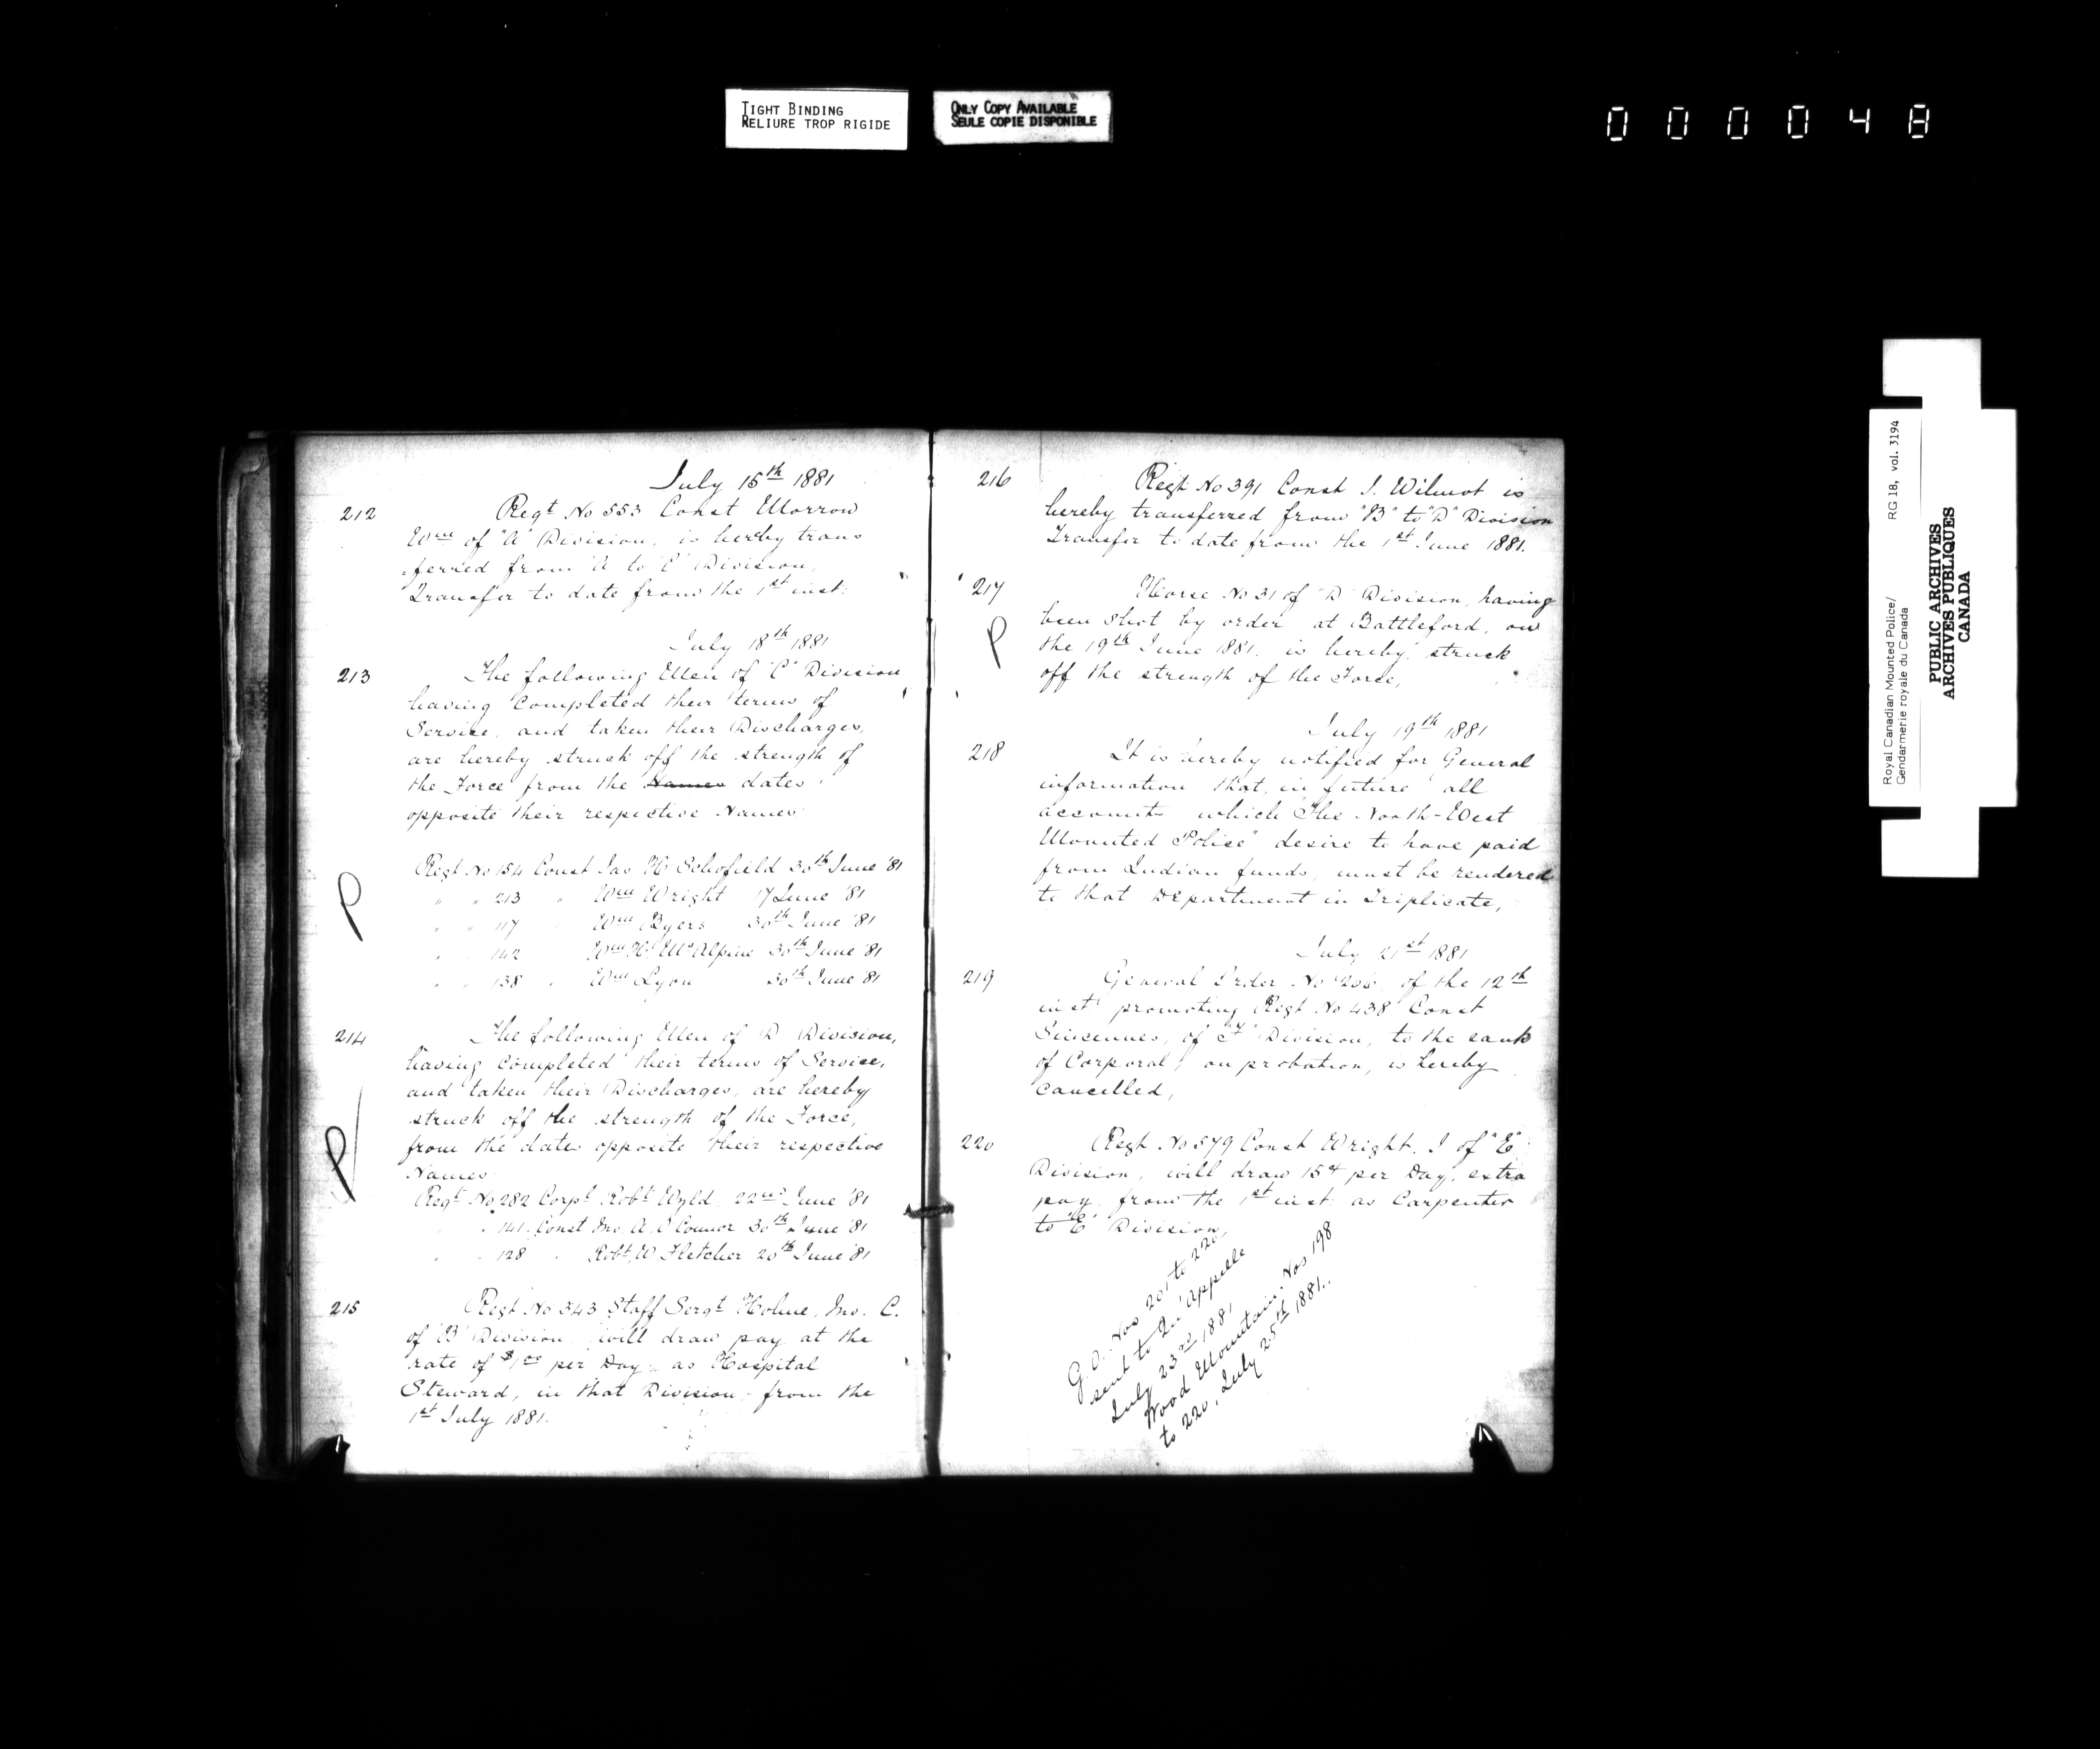 TIGHT BINDING
RELIURE TROP RIGIDE
ONLY COPY AVAILABLE
SEULE COPIE DISPONIBLE
000048
July 15th 1881
212 Regt No 553 Const Morrow
Wm of "A" Division, is hereby trans
=ferred from "A" to "E" Division,
Transfer to date from the 1st inst:
July 18th 1881
213 The following Men of "C" Division
having completed their terms of
Service, and taken their Discharges,
are hereby struck off the strength of
the Force from the Names dates
opposite their respective Names
Regt No 154 Const Jas H Schofield 30th June '81
" " 213 " Wm Wright 17 June '81
" " 117 " Wm Byers 30th June '81
" " 142 Wm H. McAlpine 30th June '81
" " 138 " Wm Lyon 30th June '81
214 The following Men of D Division,
having completed their terms of Service,
and taken their Discharges, are hereby
struck off the strength of the Force,
from the dates opposite their respective
Names
Regt No 282 Corpl Robt Wyld 22nd June '81
" " 141 Const Jno. A. O Connor 30th June '81
" " 128 " Robt W Fletcher 20th June '81
215 Regt No 343 Staff Sergt Holme, Jno. C.
of "B" Division will draw pay at the
rate of $1.00 per Day, as Hospital
Steward, in that Division, from the
1st July 1881.
216 Regt No 391 Const J. Wilmot is
hereby transferred from "B" to "D" Division
Transfer to date from the 1st June 1881.
217 Horse No 31 of "D" Division, having
been shot by order at Battleford, on
the 19th June 1881, is hereby struck
off the strength of the Force,
July 19th 1881
218 It is hereby notified for General
information that, in future all
accounts which "The North-West
Mounted Police" desire to have paid
from Indian funds, must be rendered
to that Department in Triplicate,
July 21st 1881
219 General Order No 206 of the 12th
inst promoting Regt No 438 Const
of "F" Division, to the rank
of Corporal, on probation, is hereby
cancelled,
220 Regt No 579 Const Wright. J of "E"
Division, will draw 15¢ per Day, extra
pay, from the 1st inst: as Carpenter
to "E" Division,
G.O. Nos 201 to 220,
sent to Qu'Appelle
July 23rd 1881
Wood Mountain. Nos 198
to 220, July 25th 1881.
Royal Canadian Mounted Police/
Gendarmerie royale du Canada
RG 18, vol. 3194
PUBLIC ARCHIVES
ARCHIVES PUBLIQUES
CANADA